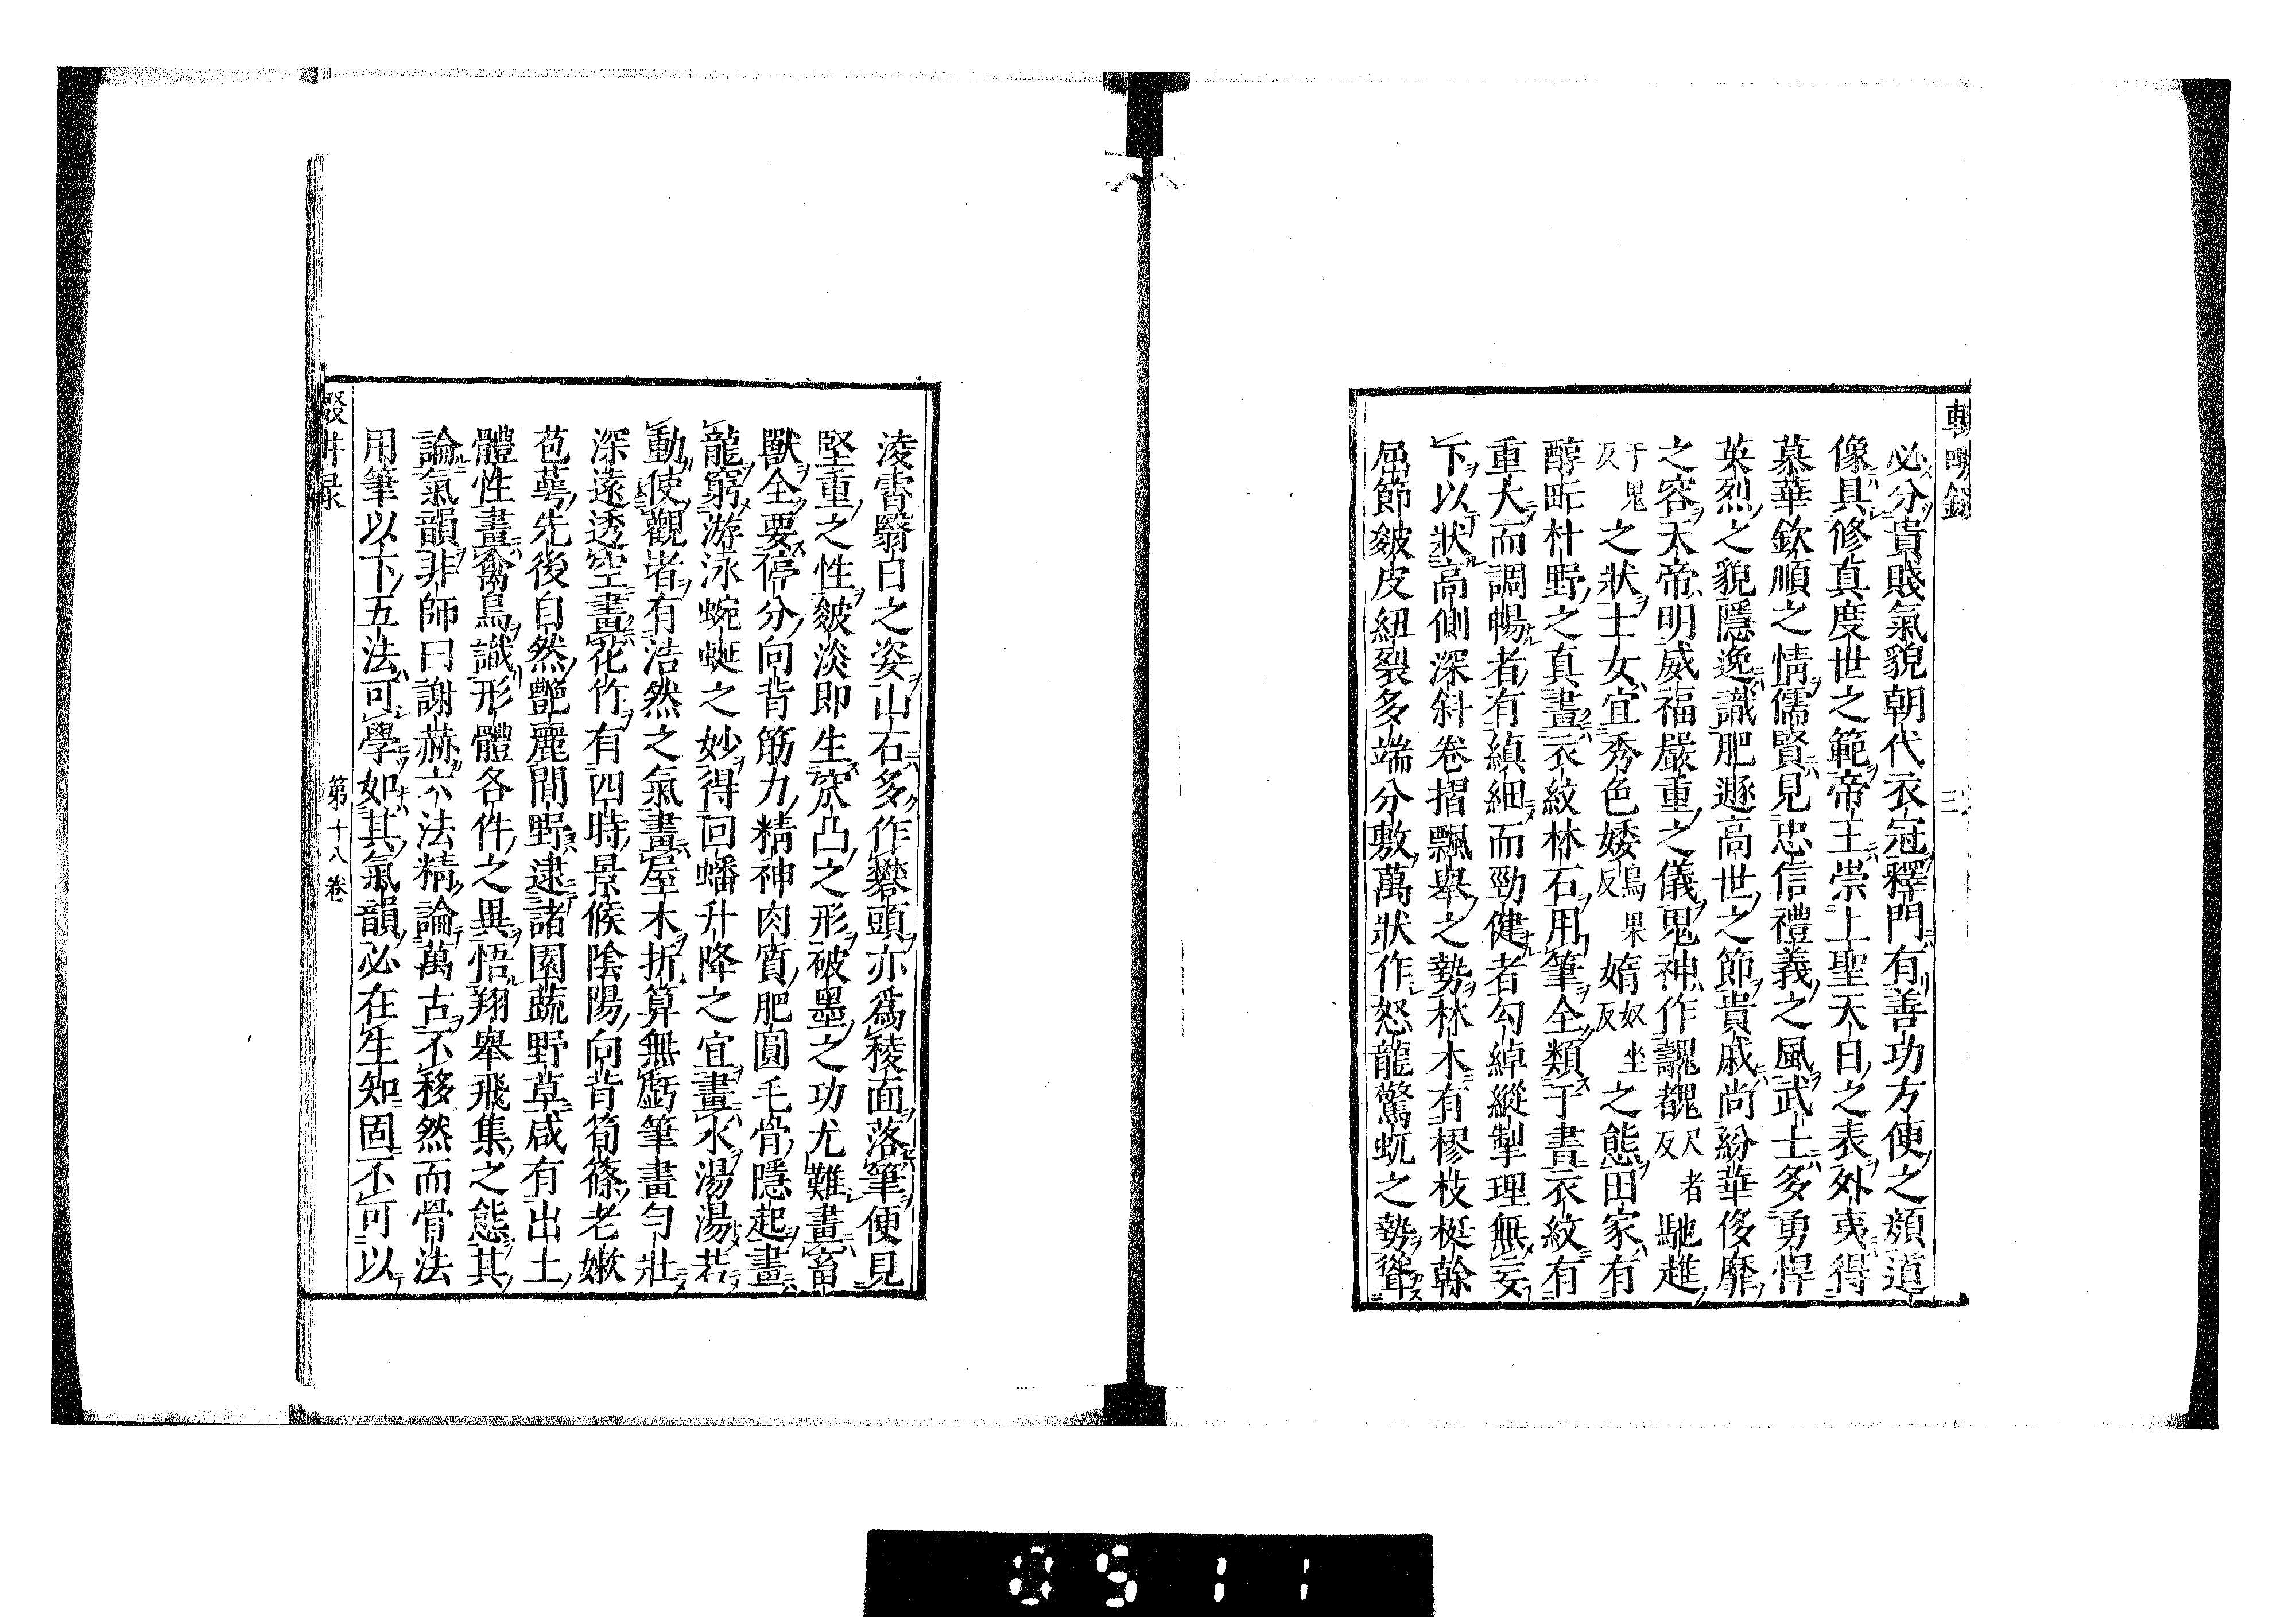 輟畊錄
三
必分貴賤氣貌朝代衣冠釋門有善功方便之顏道
像具修眞度世之範帝王崇上聖天日之表外夷得
慕華欽順之情儒賢見忠信禮義之風武士多勇悍
英烈之貌隱逸識肥遯高世之節貴戚尚紛華侈靡
之容天帝明威福嚴重之儀鬼神作醜䰩尺者反馳趡
于鬼反之狀士女宜秀色婑烏果反媠奴坐反之態田家有
醇甿朴野之眞畫衣紋林石用筆全類于書衣紋有
重大而調暢者有縝細而勁健者勾綽縱掣理無妄
下以狀高側深斜卷摺飄舉之勢林木有樛枝梃幹
屈節皴皮紐裂多端分敷萬狀作怒龍驚虬之勢聳
淩霄翳日之姿山石多作礬頭亦爲稜面落筆便見
堅重之性皴淡即生窊凸之形破墨之功尤難畫畜
獸全要停分向背筋力精神肉質肥圓毛骨隱起畫
龍窮游泳蜿蜒之妙得回蟠升降之宜畫水湯湯若
動使觀者有浩然之氣畫屋木折算無虧筆畫勻壯
深遠透空畫花竹有四時景候陰陽向背筍篠老嫰
苞萼先後自然艷麗閒野逮諸園蔬野草咸有出土
體性畫禽鳥識形體各件之異悟翔舉飛集之態其
論氣韻非師曰謝赫六法精論萬古不移然而骨法
用筆以下五法可學如其氣韻必在生知固不可以
輟畊錄
第十八卷
0511